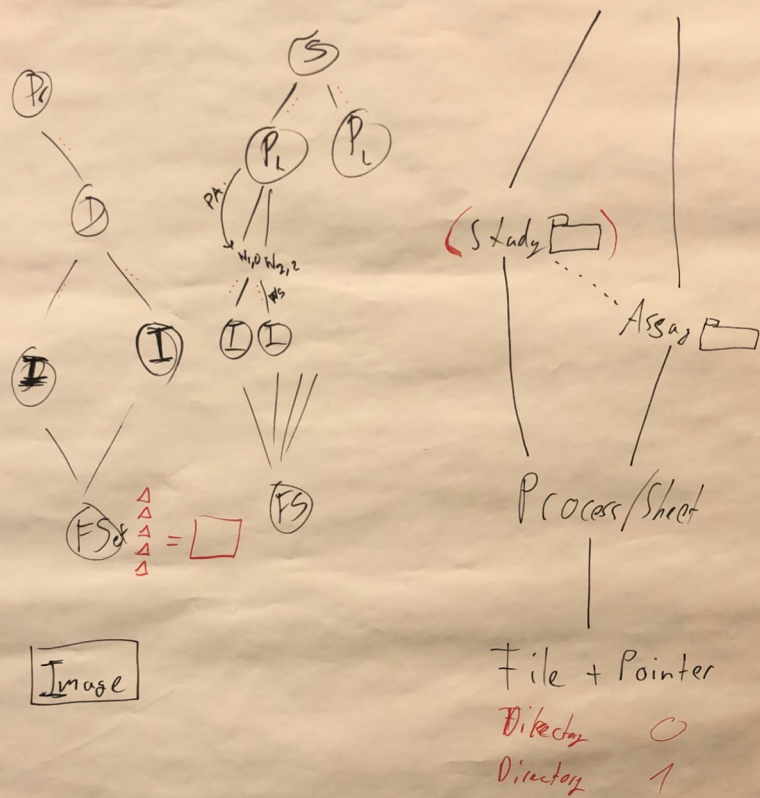 Pr
D
I I
FSet
=
Image
S
PL PL
PA
W1,0 W2,2
WS
I I
FS
(Study)
Assay
Process/Sheet
File + Pointer
Directory 0
Directory 1